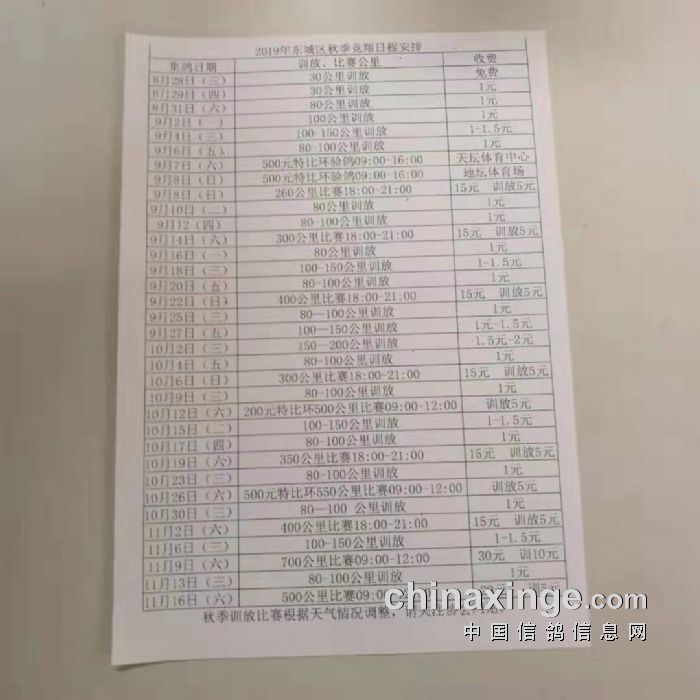 2019年东城区秋季竞翔日程安排
集鸽日期 训放、比赛公里 收费
8月28日（三） 30公里训放 免费
8月29日（四） 30公里训放 1元
8月31日（六） 80公里训放 1元
9月2日（一） 100公里训放 1元
9月4日（三） 100-150公里训放 1-1.5元
9月6日（五） 80-100公里训放 1元
9月7日（六） 500元特比环验鸽09:00-16:00 天坛体育中心
9月8日（日） 500元特比环验鸽09:00-16:00 地坛体育场
9月8日（日） 260公里比赛18:00-21:00 15元 训放5元
9月10日（二） 80公里训放 1元
9月12（四） 80-100公里训放 1元
9月14日（六） 300公里比赛18:00-21:00 15元 训放5元
9月16日（一） 80公里训放 1元
9月18日（三） 100-150公里训放 1-1.5元
9月20日（五） 80-100公里训放 1元
9月22日（日） 400公里比赛18:00-21:00 15元 训放5元
9月25日（三） 80—100公里训放 1元
9月27日（五） 100—150公里训放 1元-1.5元
10月2日（三） 150—200公里训放 1.5元-2元
10月4日（五） 80-100公里训放 1元
10月6日（日） 300公里比赛18:00-21:00 15元 训放5元
10月9日（三） 80-100公里训放 1元
10月12日（六） 200元特比环500公里比赛09:00-12:00 训放5元
10月15日（二） 100-150公里训放 1-1.5元
10月17日（四） 80-100公里训放 1元
10月19日（六） 350公里比赛18:00-21:00 15元 训放5元
10月23日（三） 80-100公里训放 1元
10月26日（六） 500元特比环550公里比赛09:00-12:00 训放5元
10月30日（三） 80—100 公里训放 1元
11月2日（六） 400公里比赛18:00-21:00 15元 训放5元
11月6日（三） 100-150公里训放 1-1.5元
11月9日（六） 700公里比赛09:00-12:00 30元 训10元
11月13日（三） 80-100公里训放 1元
11月16日（六） 500公里比赛09:00 训5元
秋季训放比赛根据天气情况调整，请关注
chinaxinge.com
中国信鸽信息网